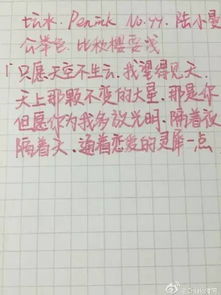 钻水. Penink No.99. 陆小曼
公举色. 比秋樱要浅
「只愿天空不生云, 我望得见天.
天上那颗不变的大星, 那是你
但愿你为我多放光明, 隔着夜
隔着天, 通着恋爱的灵犀一点